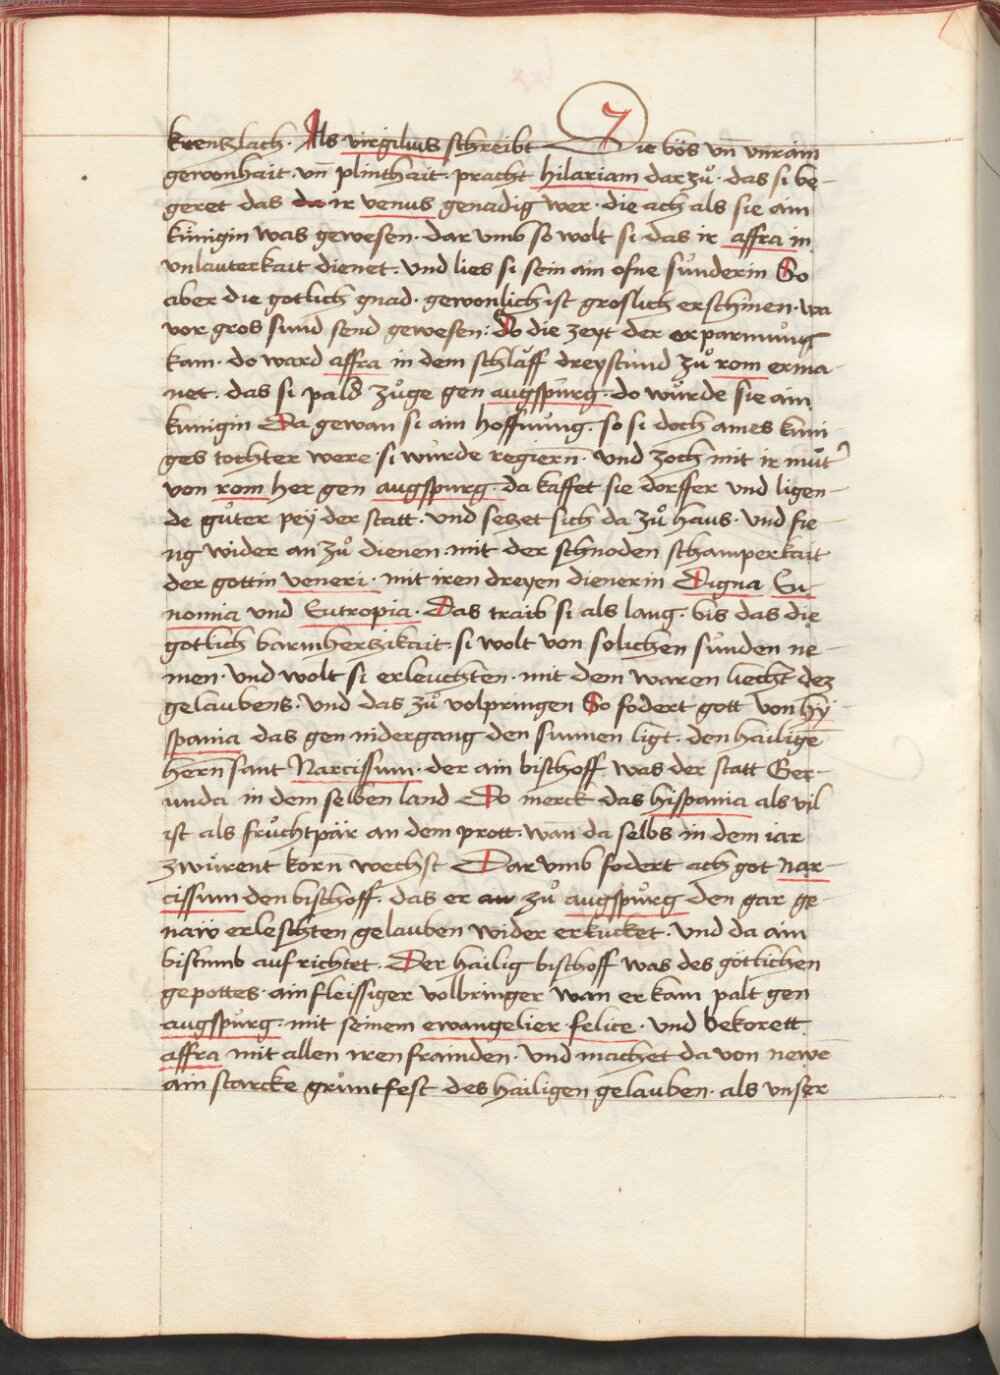 krentzlach. Als virgilius schreibt Die bös vn̄ vnrain
gewonhait. vn̄ plinthait. pracht hilariam dar zů. das si be-
geret das ir venus genadig wer. die ach als sie ain
künigin was gewesen. dar vmb so wolt si das ir affra in
vnlauterkait dienet. Vnd lies si sein ain ofne sünderin So
aber die gotlich gnad. gewonlich ist groslich erschinen. wa
vor gros sund send gewesen: Do die zeyt der erparmung
kam. do ward affra in dem schlaff dreystund zů rom erma
net. das si pald zůge gen augspurg. do wurde sie ain
kunigin Da gewan si ain hoffnung. so si doch aines kuni
ges tochter were si wurde regiern. Vnd zoch mit ir mut̉
von rom her gen augspurg. da kaffet sie dorffer vnd ligen-
de gůter peÿ der statt. Vnd setzet sich da zů haus. Vnd fie-
ng wider an zů dienen. mit der schnoden schamperkait
der gottin veneri. mit iren dreyen dienerin Digna Eu-
nomia vnd Eutropia. Das traib si als lang. bis das die
gotlich barmhertzikait. si wolt von solichen sunden ne-
men. Vnd wolt si erleuchten. mit dem waren liecht dez
gelaubens. Vnd das zů volpringen So fodert gott von hy-
spania das gen nidergang den sunnen ligt. den hailigē
hern sant Narcissum. der ain bischoff was der statt Ger-
unda in dem selben land Do merck das hispania als vil
ist als fruchtpär an dem prott. wan da selbs in dem iar
zwürent korn wechst Dar vmb fodert ach got nar-
cissum den bischoff. das er zů augspurg den gar ge-
naw erleschten gelauben wider erkucket. Vnd da ain
bistumb auf richtet. Der hailig bischoff was des gotlichen
gepottes. ain fleissiger volbringer wan er kam palt gen
augspurg. mit seinem ewangelier felice. Vnd bekorett
affra mit allen iren frainden. Vnd machet da von newe
ain starcke gruntfest des hailigen gelauben. als vnser